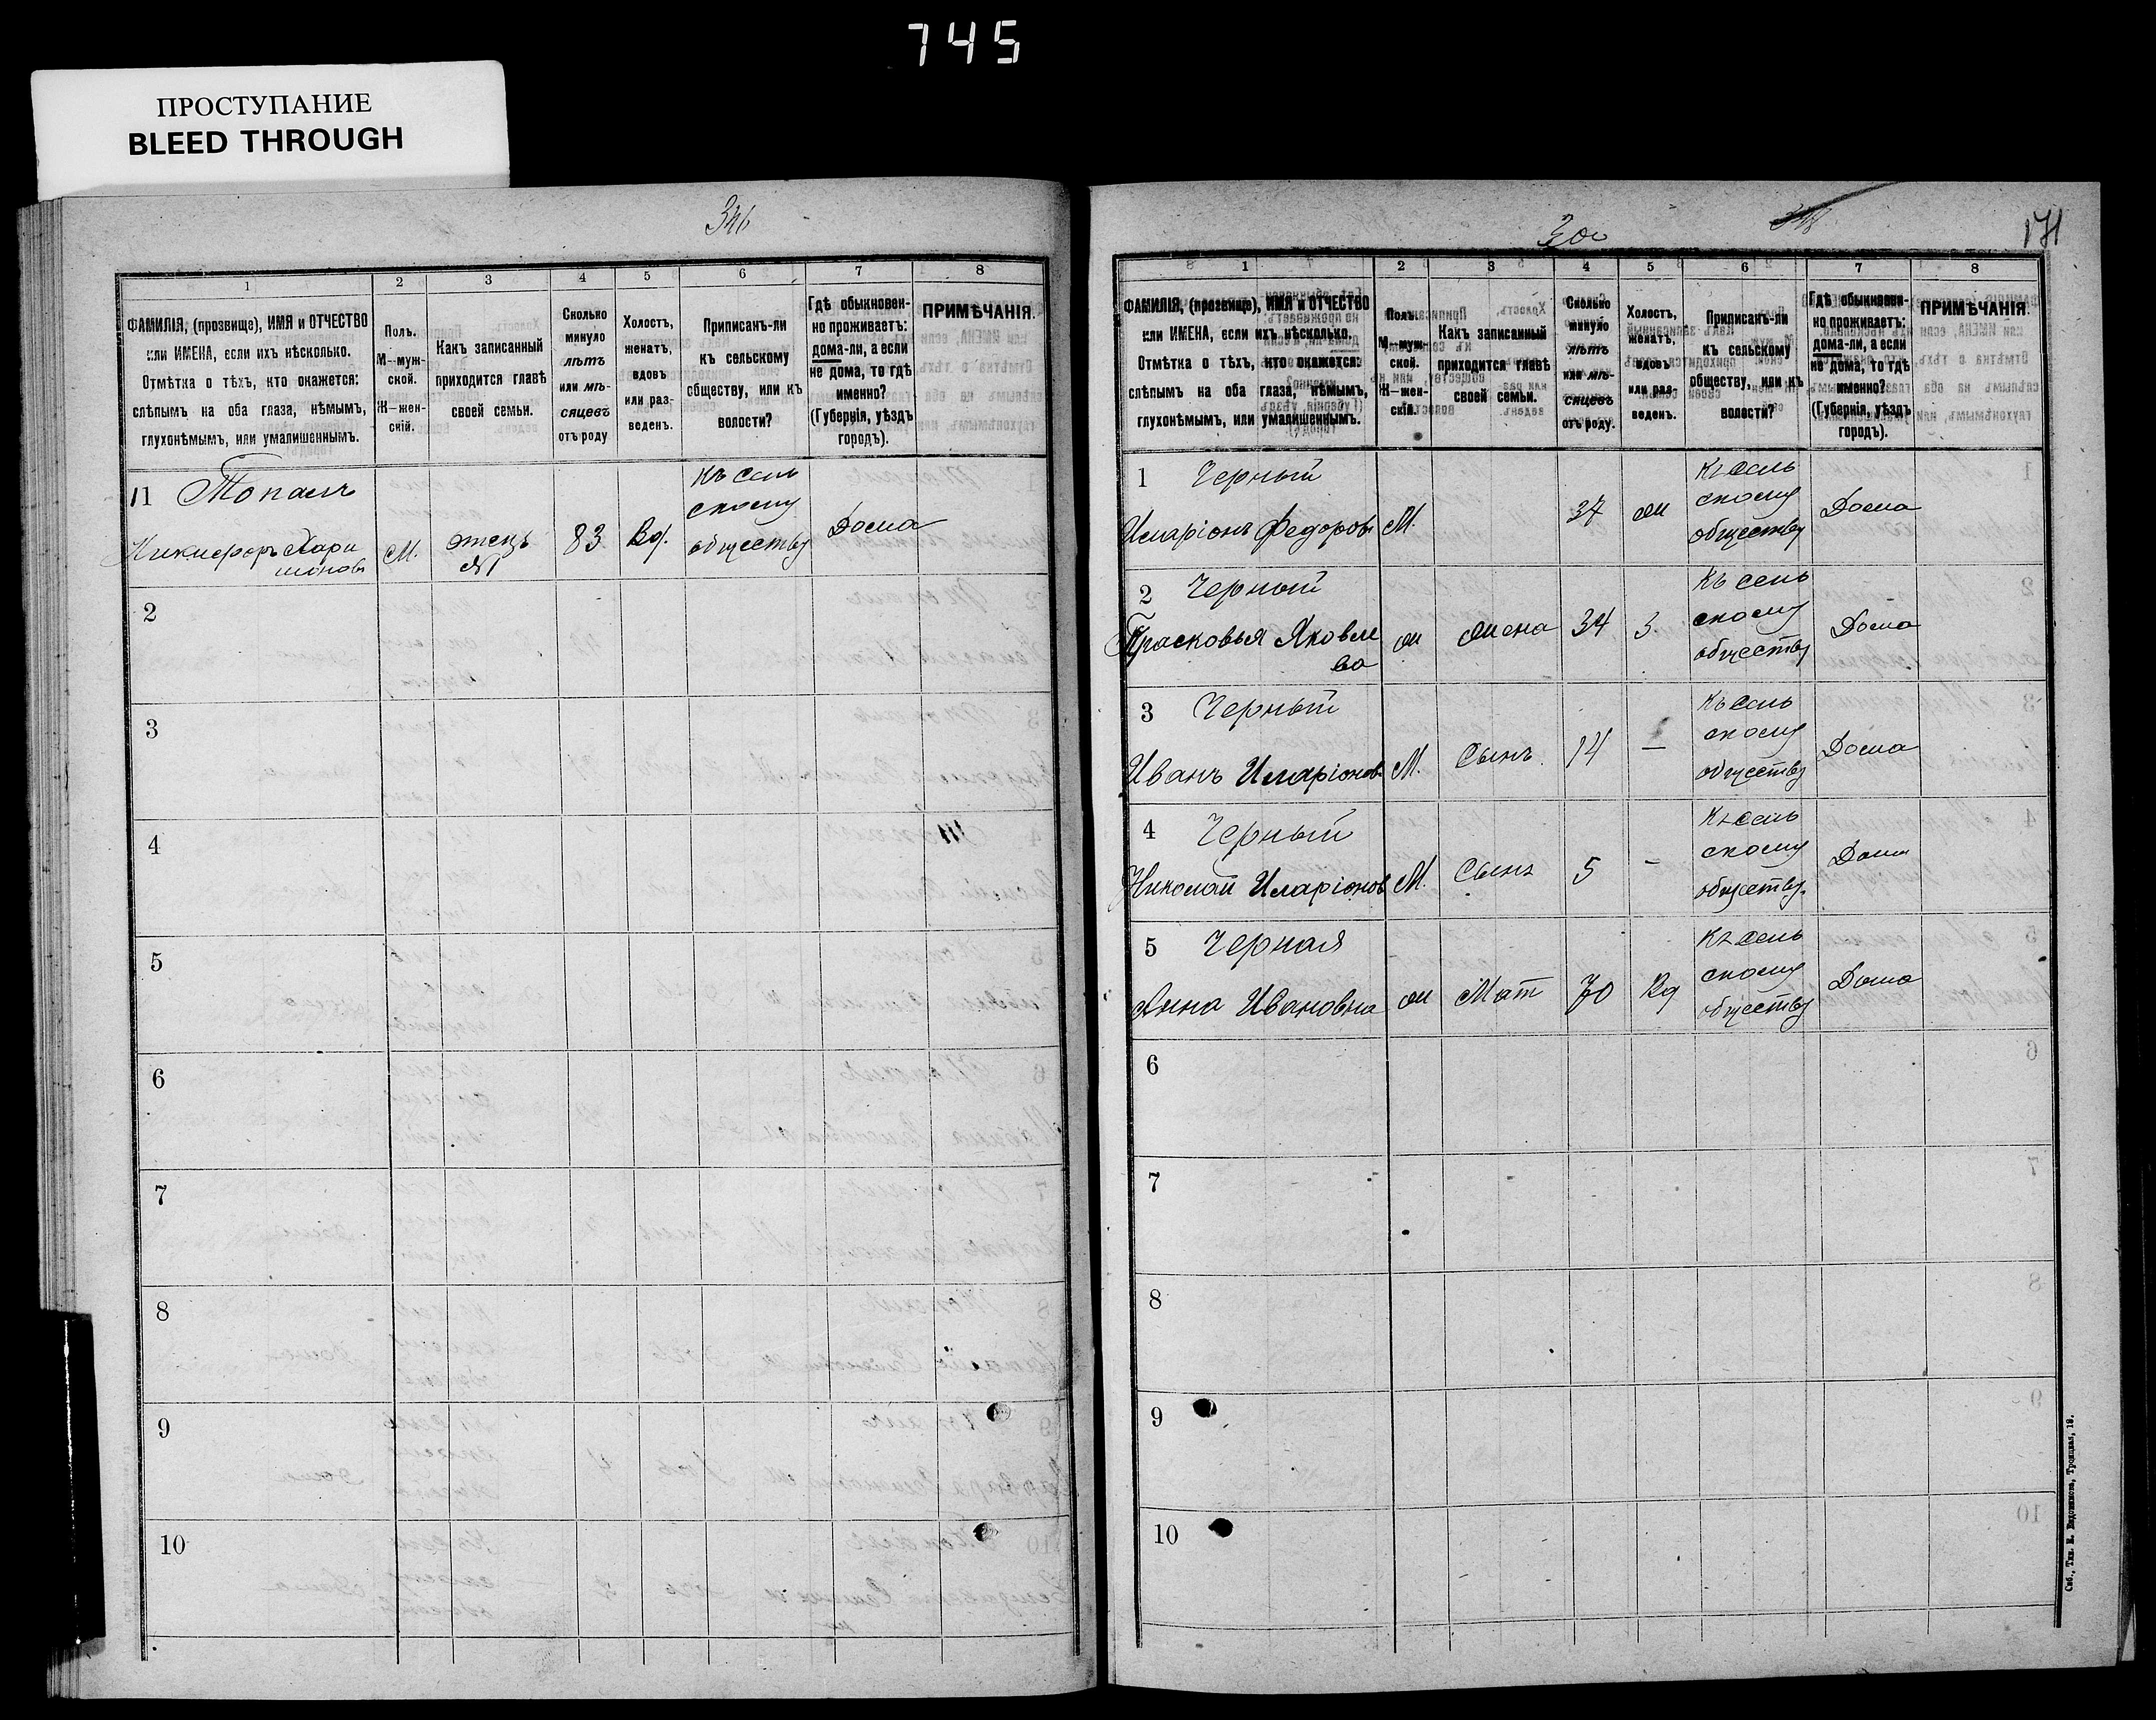 745
ПРОСТУПАНИЕ
BLEED THROUGH
346
1
2
3
4
5
6
7
8
ФАМИЛІЯ, (прозвище), ИМЯ и ОТЧЕСТВО
или ИМЕНА, если ихъ нѣсколько.
Отмѣтка о тѣхъ, кто окажется:
слѣпымъ на оба глаза, нѣмымъ,
глухонѣмымъ, или умалишеннымъ.
Полъ.
М—муж-
ской.
Ж—жен-
скій.
Какъ записанный
приходится главѣ
своей семьи.
Сколько
минуло
лѣтъ
или мѣ-
сяцевъ
отъ роду
Холостъ,
женатъ,
вдовъ
или раз-
веденъ.
Приписанъ-ли
къ сельскому
обществу, или къ
волости?
Гдѣ обыкновен-
но проживаетъ:
дома-ли, а если
не дома, то гдѣ
именно?
(Губернія, уѣздъ
городъ).
ПРИМѢЧАНІЯ.
11 Топалъ
Никифоръ Хари
тоновъ
М.
отецъ
№1
83
Вд.
Къ сель
скому
обществу
Дома
2
3
4
5
6
7
8
9
10
300
171
1
2
3
4
5
6
7
8
ФАМИЛІЯ, (прозвище), ИМЯ и ОТЧЕСТВО
или ИМЕНА, если ихъ нѣсколько.
Отмѣтка о тѣхъ, кто окажется:
слѣпымъ на оба глаза, нѣмымъ,
глухонѣмымъ, или умалишеннымъ.
Полъ.
М—муж-
ской.
Ж—жен-
скій.
Какъ записанный
приходится главѣ
своей семьи.
Сколько
минуло
лѣтъ
или мѣ-
сяцевъ
отъ роду.
Холостъ,
женатъ,
вдовъ
или раз-
веденъ.
Приписанъ-ли
къ сельскому
обществу, или къ
волости?
Гдѣ обыкновен-
но проживаетъ:
дома-ли, а если
не дома, то гдѣ
именно?
(Губернія, уѣздъ
городъ).
ПРИМѢЧАНІЯ.
1 Черный
Иларіонъ Федоровъ
М.
37
ж
Къ сель
скому
обществу
Дома
2 Черный
Прасковья Яковле
ва
ж
жена
34
З.
Къ сель
скому
обществу
Дома
3 Черный
Иванъ Иларіоновъ
М.
Сынъ.
14
—
Къ сель
скому
обществу
Дома
4 Черный
Николай Иларіоновъ
М.
Сынъ
5
—
Къ сель
скому
обществу.
Дома
5 Черная
Анна Ивановна
ж
Мат
70
Вд
Къ сель
скому
обществу
Дома
6
7
8
9
10
Спб., Тип. Е. Евдокимова, Троицкая, 18.